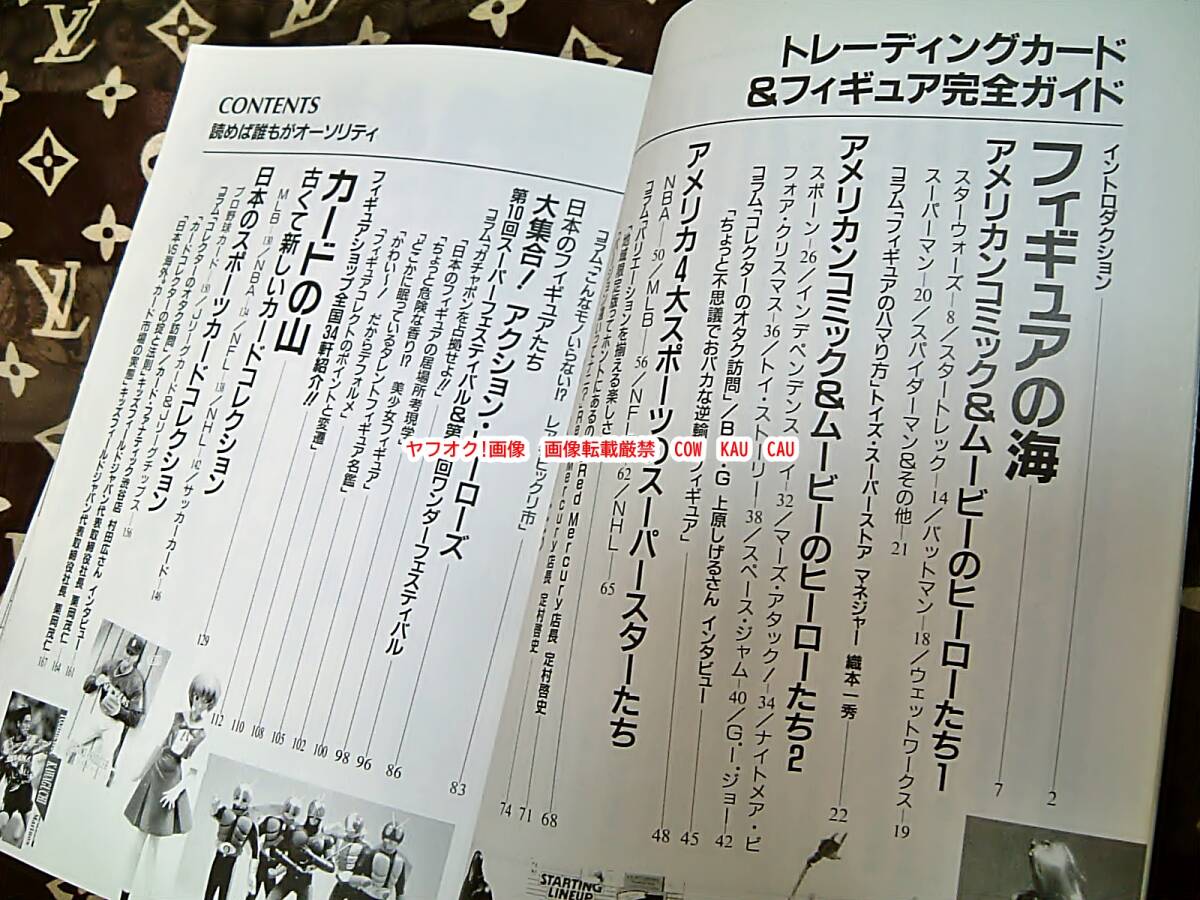 トレーディングカード
&フィギュア完全ガイド
イントロダクション 2
フィギュアの海 7
アメリカンコミック&ムービーのヒーローたち1
スターウォーズ—8/スタートレック—14/バットマン—18/ウェットワークス—19
スーパーマン—20/スパイダーマン&その他—21
コラム「フィギュアのハマり方」トイズ・スーパーストア マネジャー 織本一秀 22
アメリカンコミック&ムービーのヒーローたち2
スポーン—26/インデペンデンス・デイ—32/マーズ・アタック!—34/ナイトメア・ビ
フォア・クリスマス—36/トイ・ストーリー—38/スペース・ジャム—40/G.I.ジョー—42
コラム「コレクターのオタク訪問」/B・G 上原しげるさん インタビュー 45
「ちょっと不思議でおバカな逆輸入フィギュア」 48
アメリカ4大スポーツのスーパースターたち
NBA—50/MLB—56/NFL—62/NHL—65
コラム「バリエーションを揃える楽しさ」
68
71
74
CONTENTS
読めば誰もがオーソリティ
日本のフィギュアたち
コラム「こんなモノいらない!?
店長 定村啓史
大集合! アクション・ヒーローズ 83
第10回スーパーフェスティバル&第 回ワンダーフェスティバル 86
コラム「ガチャポンを占拠せよ!!」 96
「日本のフィギュアの居場所考現学」 98
「ちょっと危険な香り!? 美少女フィギュア」 100
「どこかに眠っているタレントフィギュア名鑑」 102
「かわい〜! だからデフォルメ」 105
「フィギュアコレクトのポイントと変遷」 108
フィギュアショップ全国34軒紹介!! 110
カードの山
古くて新しいカードコレクション 112
MLB—130/NBA—134/NFL—138/NHL—142/サッカーカード—146
日本のスポーツカードコレクション 129
プロ野球カード—150/Jリーグカード&Jリーグチップス—156
コラム「コレクターのオタク訪問」 村田広さん インタビュー 161
「カードコレクターの掟と法則」 164
「日本VS海外・カード市場の実態」キッズフィールドジャパン代表取締役社長 栗岡茂仁 167
STARTING
LINEUP
ヤフオク!画像 画像転載厳禁 COW KAU CAU